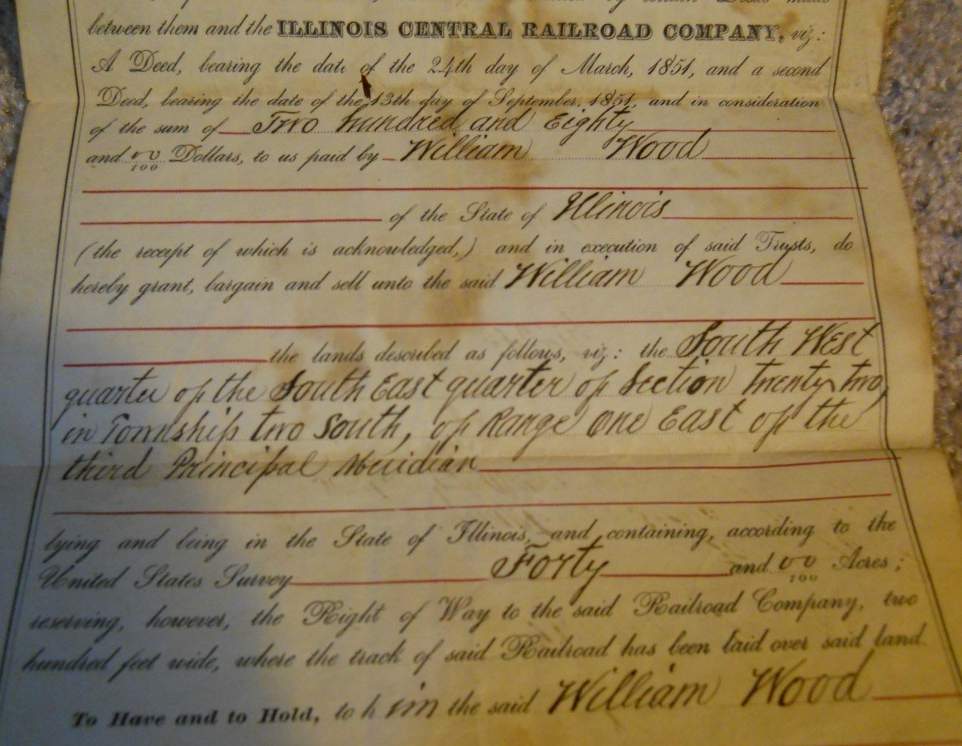 between them and the ILLINOIS CENTRAL RAILROAD COMPANY, viz:
A Deed, bearing the date of the 24th day of March, 1851, and a second
Deed, bearing the date of the 13th day of September, 1851, and in consideration
of the sum of Two hundred and Eighty
and 00/100 Dollars, to us paid by William Wood
of the State of Illinois
(the receipt of which is acknowledged,) and in execution of said Trusts, do
hereby grant, bargain and sell unto the said William Wood
the lands described as follows, viz: the South West
quarter of the South East quarter of Section Twenty two,
in Township two South, of Range One East of the
third Principal Meridian
lying and being in the State of Illinois, and containing, according to the
United States Survey Forty and 00/100 Acres;
reserving, however, the Right of Way to the said Railroad Company, two
hundred feet wide, where the track of said Railroad has been laid over said land.
To Have and to Hold, to him the said William Wood